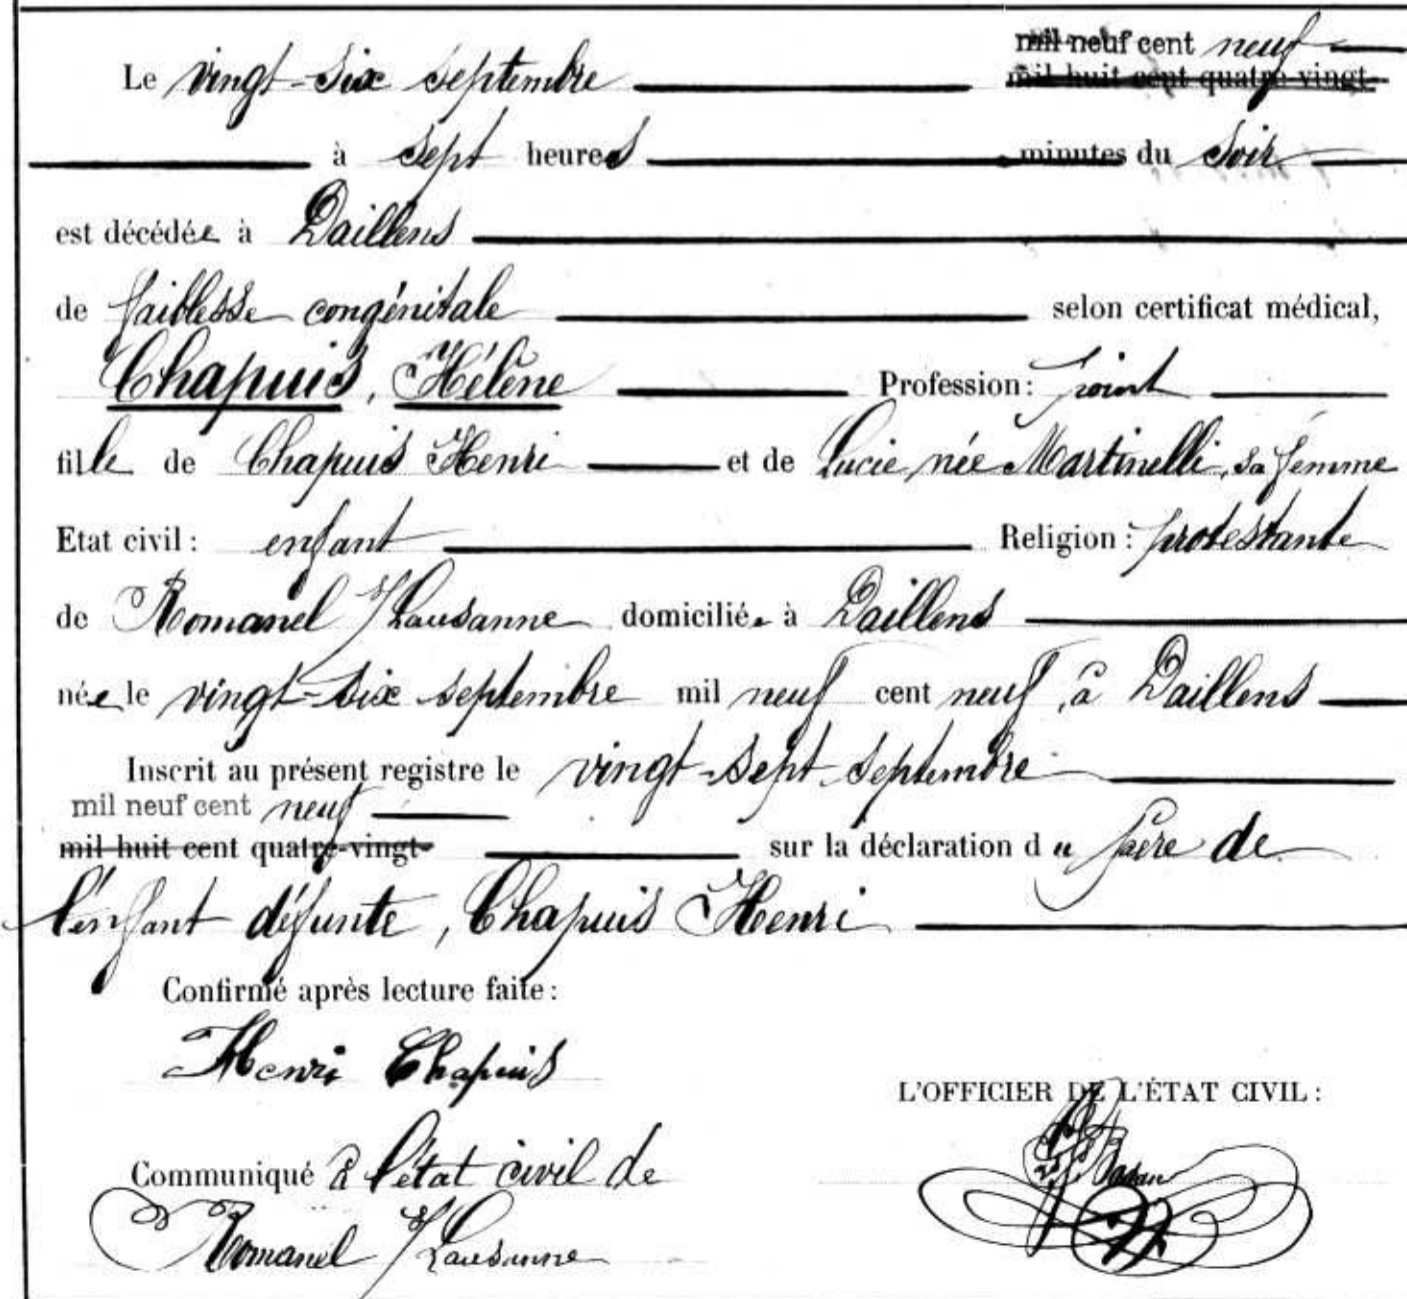 mil neuf cent neuf
Le vingt-six septembre mil huit cent quatre-vingt-
à sept heures minutes du soir
est décédée à Daillens
de faiblesse congénitale selon certificat médical,
Chapuis, Hélène Profession: point
fille de Chapuis Henri et de Lucie née Martinelli, sa femme
Etat civil: enfant Religion: protestante
de Romanel s/Lausanne domiciliée à Daillens
née le vingt-six septembre mil neuf cent neuf, à Daillens
Inscrit au présent registre le vingt-sept septembre
mil neuf cent neuf
mil huit cent quatre-vingt- sur la déclaration du père de
l'enfant défunte, Chapuis Henri
Confirmé après lecture faite:
Henri Chapuis
L'OFFICIER DE L'ÉTAT CIVIL:
Communiqué à l'état civil de
Romanel s/Lausanne